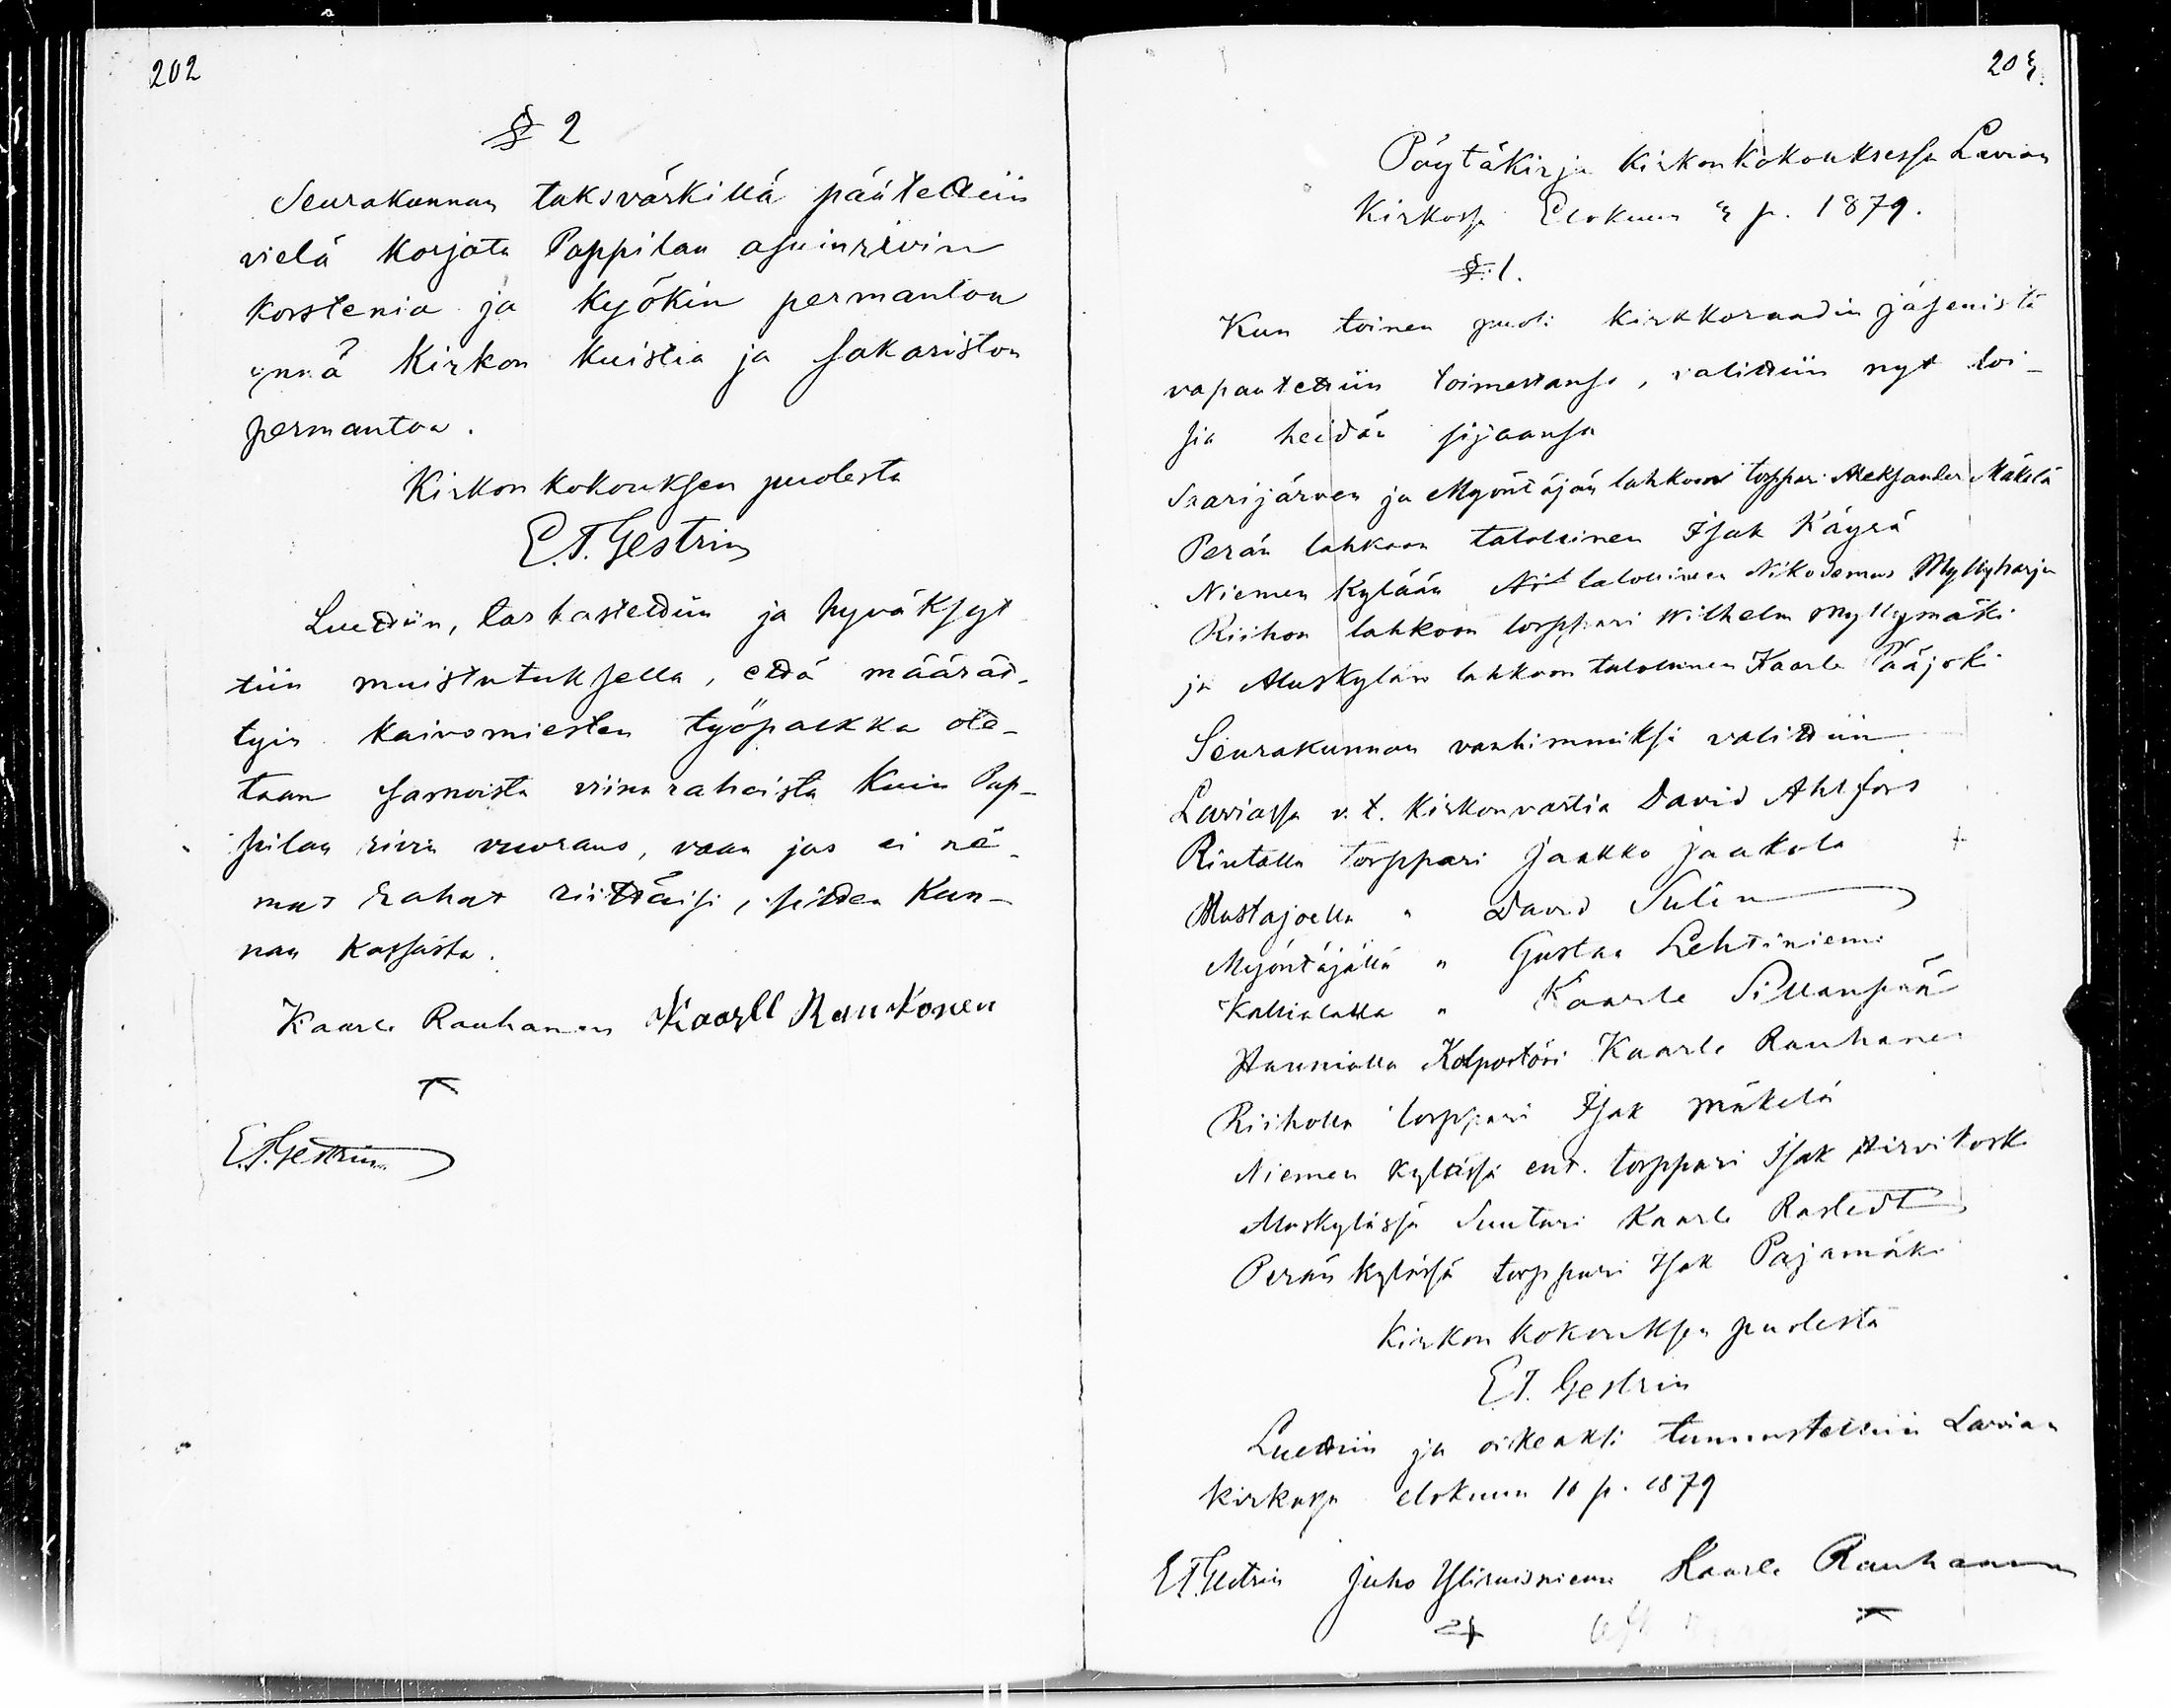 202
§ 2
Seurakunnan taksvärkillä päätettiin
vielä korjata Pappilan asuinrivin
korstenia ja kyökin permantoa
ynnä Kirkon kuistia ja sakariston
permantoa.
Kirkon kokouksen puolesta
E.T. Gestrin
Luettiin, tarkastettiin ja hyväksyt
tiin muistutuksella, että määrät-
tyin kaivomiesten työpalkka ote-
taan samoista viina rahoista kuin Pap-
pilan rivin vuoraus, vaan jos ei nä-
mät rahat riittäisi, sitten Kun-
nan kassasta.
Kaarle Rauhanen Kaarll Raukonen
E.T. Gestrin
203.
Pöytäkirja Kirkonkokouksessa Lavian
Kirkossa Elokuun 3 p. 1879.
§. 1.
Kun toinen puoli kirkkoraadin jäsenistä
vapautettiin toimestansa, valittiin nyt toi-
sia heidän sijaansa
Saarijärven ja Myöntäjän lahkoon torppari Aleksander Mäkelä
Perän lahkoon talollinen Isak Käyrä
Niemen Kylään talollinen Nikodemus Myllyharju
Riihon lahkoon torppari Wilhelm Myllymäki
ja Aluskylän lahkoon talollinen Kaarle Pääjoki
Seurakunnan vanhimmiksi valittiin
Laviassa v.t. Kirkonvartia David Ahlfors
Rintalla torppari Jaakko Jaakola
Mustajoella " David Sulin
Myöntäjällä " Gustaa Lehtiniemi
Kallialalla " Kaarle Sillanpää
Haunialla Kolportöri Kaarle Rauhanen
Riiholla torppari Isak Mäkelä
Niemen kylässä ent. torppari Isak Hirvikoski
Aluskylässä Suutari Kaarle Rastedt
Perän kylässä torppari Isak Pajamäki
Kirkon kokouksen puolesta
E.T. Gestrin
Luettiin ja oikeaksi tunnustettiin Lavian
kirkossa elokuun 10 p. 1879
E.T. Gestrin Juho Yliruisniemi Kaarle Rauhanen